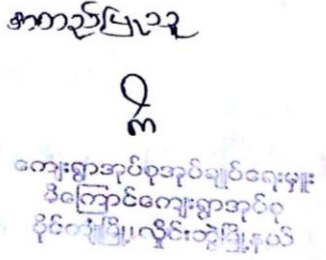 အတည်ပြုသူ
ကျေးရွာအုပ်စုအုပ်ချုပ်ရေးမှူး
မိကြောင်ကျေးရွာအုပ်စု
ပိုင်ကျုံမြို့၊လှိုင်းဘွဲ့မြို့နယ်